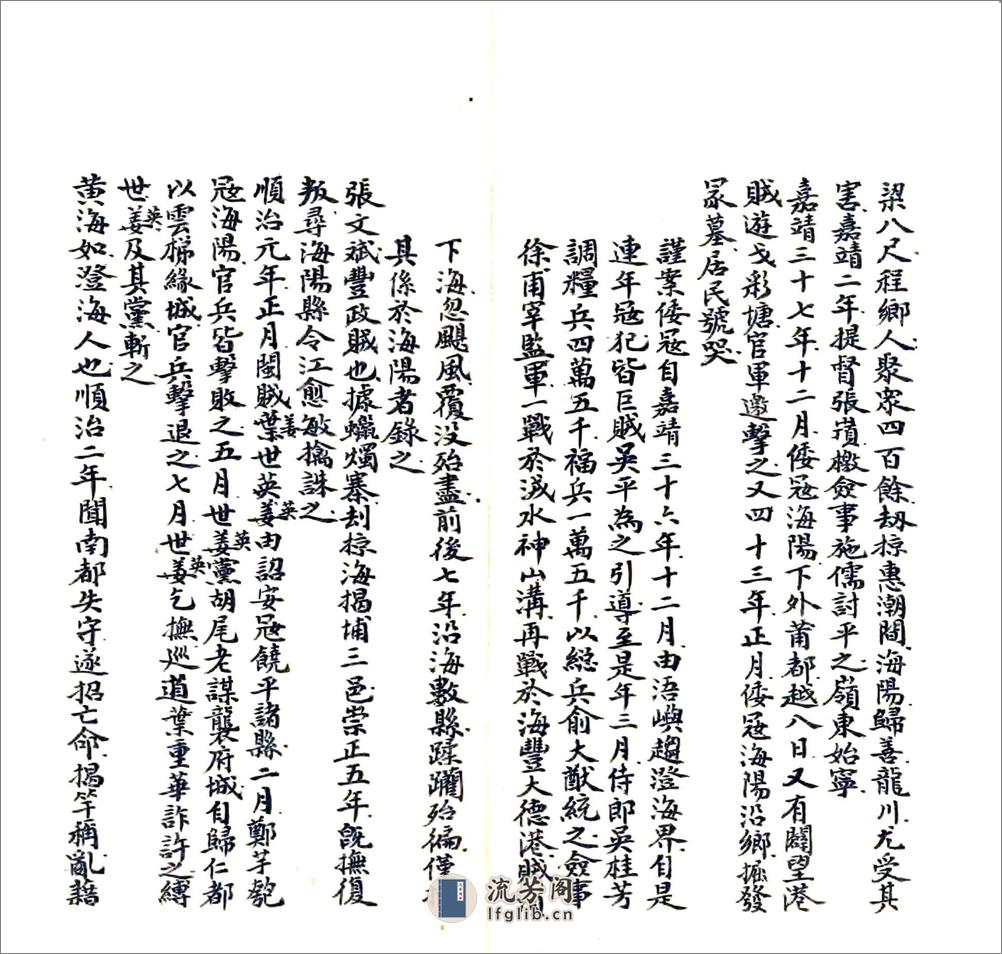 梁八尺程鄉人聚眾四百餘刼掠惠潮間海陽歸善龍川尤受其
害嘉靖二年提督張嵿檄僉事施儒討平之嶺東始寧
嘉靖三十七年十二月倭冦海陽下外莆都越八日又有闢望港
賊遊弋彩塘官軍邀擊之又四十三年正月倭冦海陽沿鄉掘發
冡墓居民號哭
謹案倭冦自嘉靖三十六年十二月由浯嶼趨澄海界自是
連年冦犯皆巨賊吳平為之引導至是年三月侍郎吳桂芳
調糧兵四萬五千福兵一萬五千以總兵俞大猷統之僉事
徐甫宰監軍一戰於淡水神山溝再戰於海豐大德港賊
下海忽颶風覆没殆盡前後七年沿海數縣蹂躪殆徧僅
其係於海陽者錄之
張文斌豐政賊也據蠟燭寨刦掠海揭埔三邑崇正五年旣撫復
叛尋海陽縣令江愈敏擒誅之
順治元年正月閩賊葉世英姜由詔安冦饒平諸縣二月鄭芋匏
姜英
冦海陽官兵皆擊敗之五月世姜黨胡尾老謀襲府城自歸仁都
英
以雲梯緣城官兵擊退之七月世姜乞撫巡道葉重華詐許之縛
英
世姜及其黨斬之
英
黄海如澄海人也順治二年聞南都失守遂招亡命揭竿稱亂藉
流芳阁
lfglib.cn